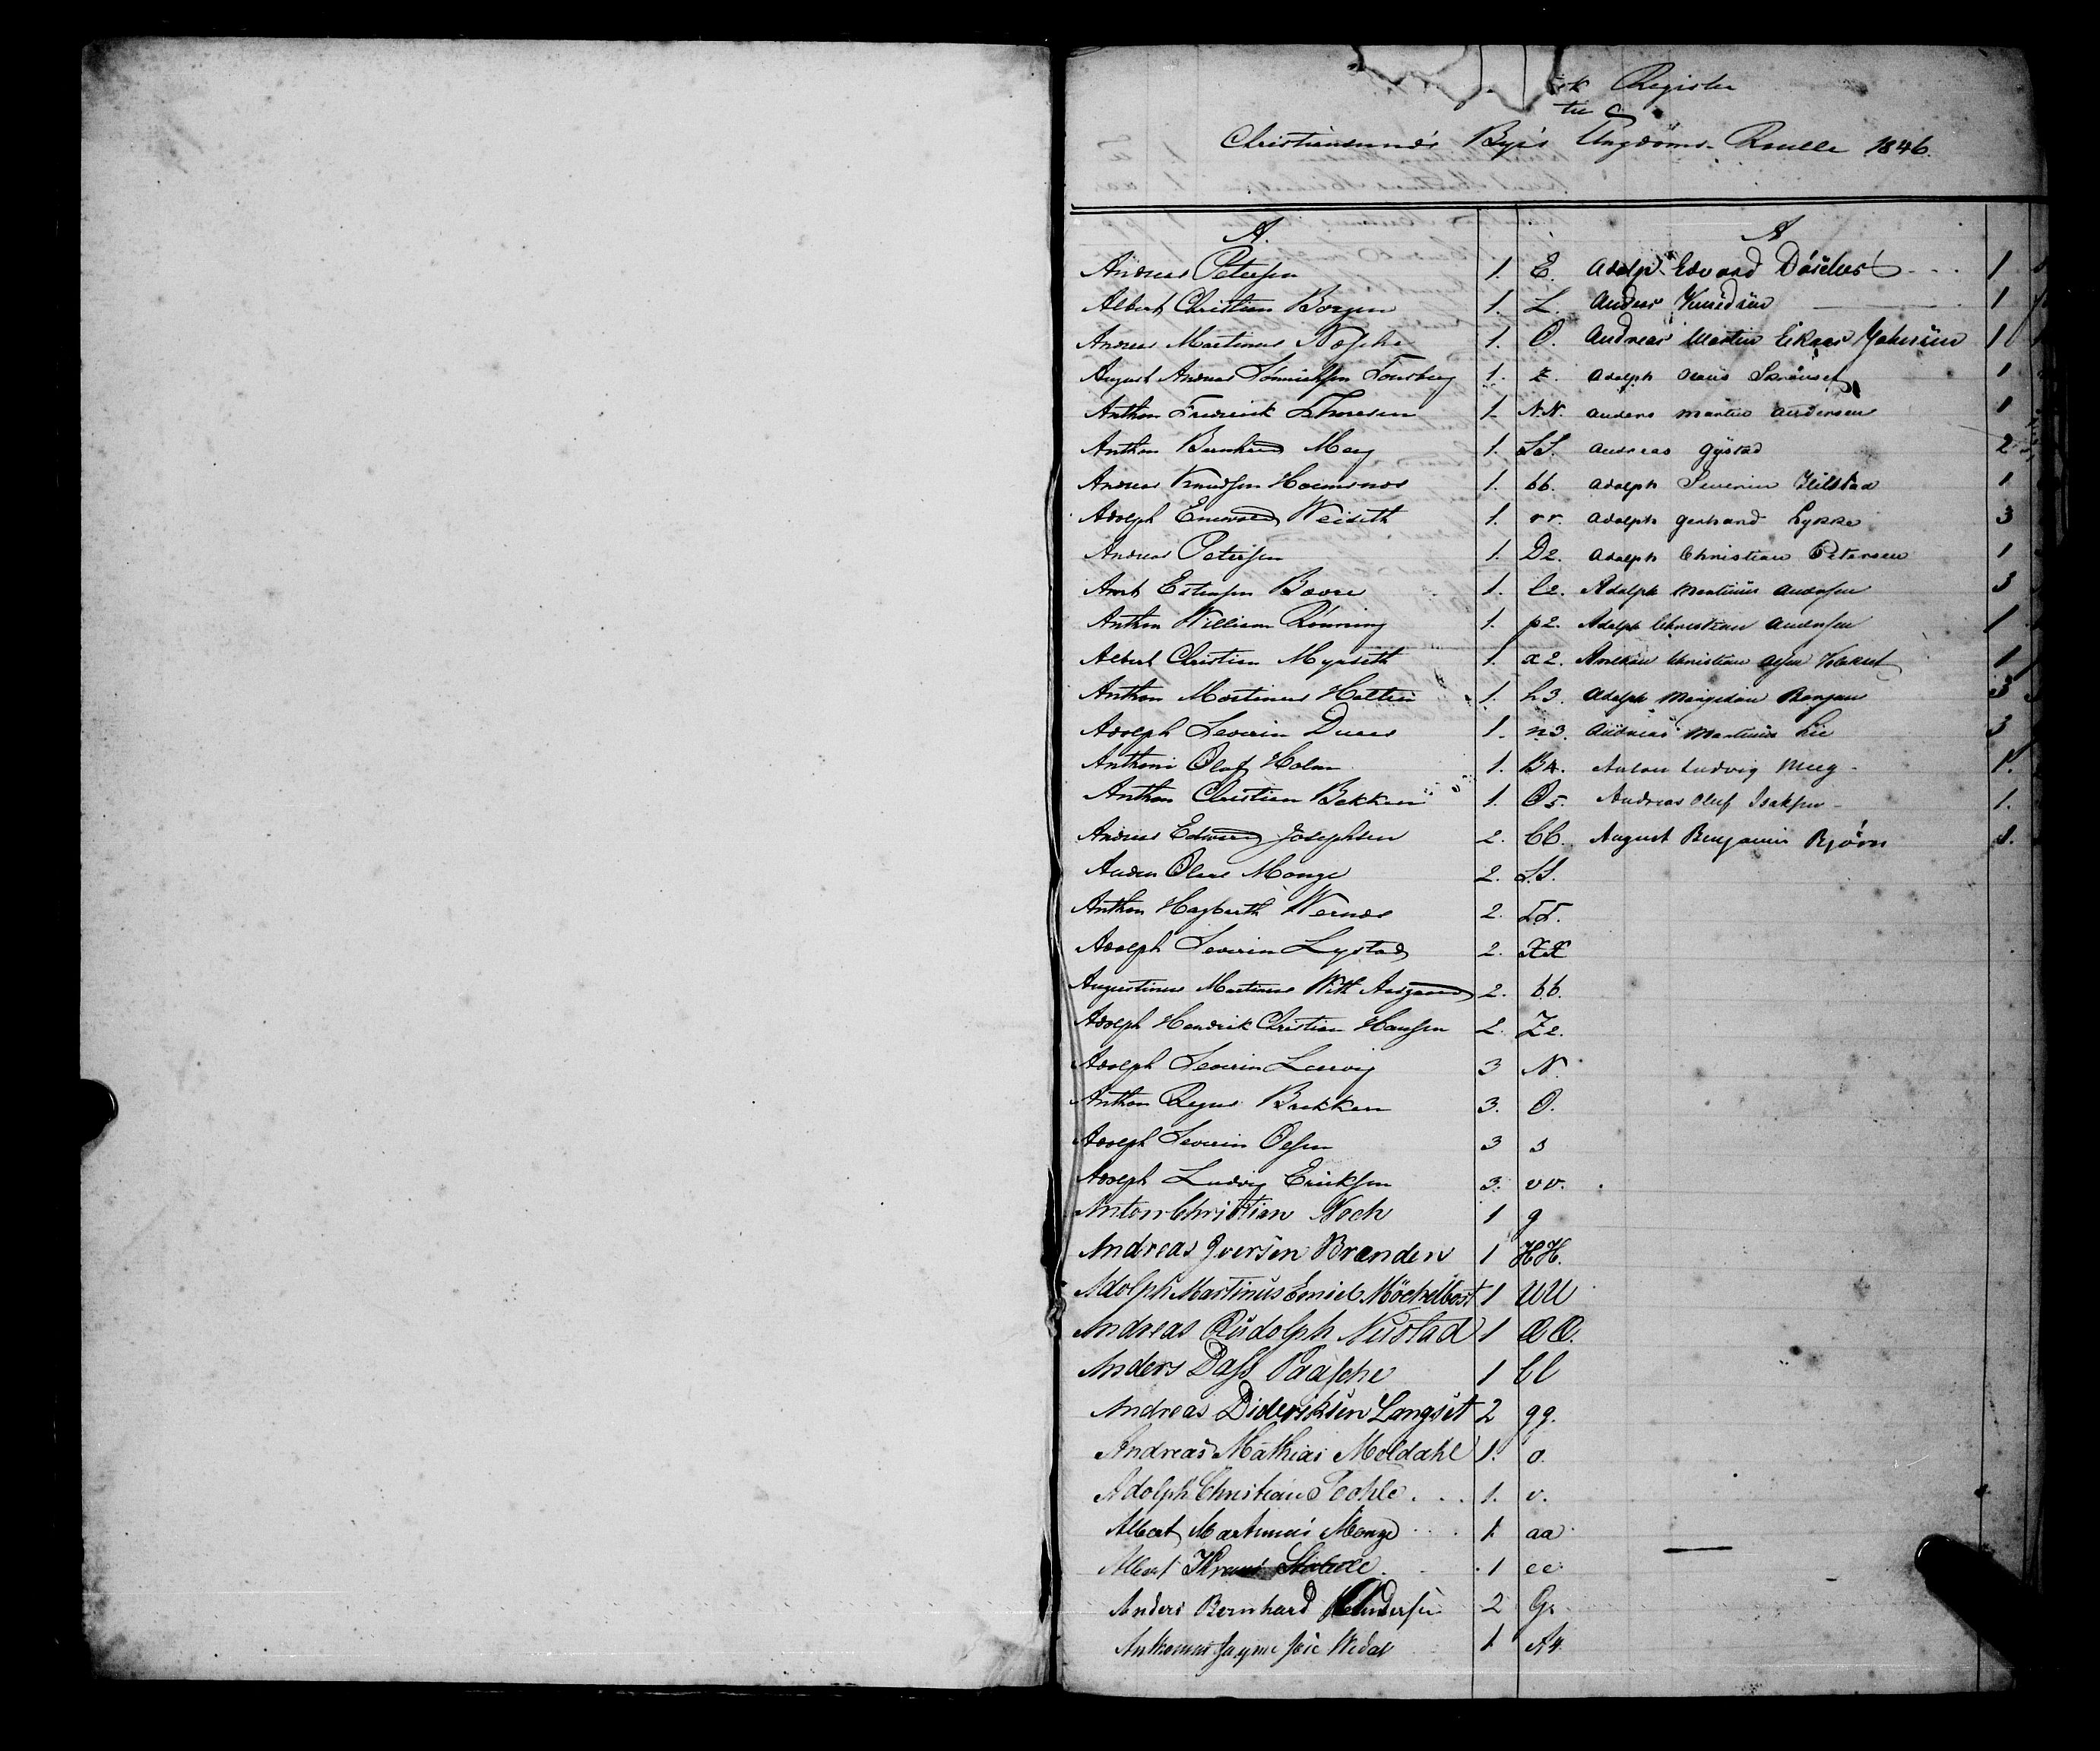 Register
til
Christiansunds Byes Ungdoms-Roulle 1846.
A.
Andreas Petersen 1. E.
Albert Christian Borgen 1. L.
Andreas Martinus Næsche 1. O.
August Andreas Sønnichsen Tonsberg 1. Z.
Anthon Fredrick Thoresen 1. N.N.
Anthon Bernhard Mey 1. SS.
Andreas Knudsen Hoemsnes 1. bb.
Adolph Weiseth 1. rr.
Andreas Petersen 1. D2.
Arnt Estensen Bøvre 1. l2.
Anthon William Rønning 1. p2.
Albert Christian Myrseth 1. a2.
Anthon Martinus 1. h3.
Adolph Severin Dues 1. n3.
Anthoni Oluf Holm 1. B4.
Anthon Christian Bakken 1. O5.
Andreas Edward Josephsen 2. CC.
Anders Olaus Monge 2. S.S.
Anthon Hagbarth Wernes 2. TT.
Adolph Severin Lystad 2. XX
Augustinus Martinus With Aasgaard 2. bb.
Adolph Hendrik Christian Hansen 2. Z2.
Adolph Severin 3 N.
Anthon Bakken 3. O.
Adolph Severin Olsen 3 s
Adolph Ludvig Ericksen 3. vv.
Anton Christian Koch 1 g
Andreas Iversen Brænden 1 HH.
Adolph Martinus Emiel Möckelbost 1 UU
Andreas Rudolph Neustad 1 ÆÆ.
Anders Dass Paasche 1 ll
Andreas Dideriksen Langset 2 gg.
Andreas Mathias Moldahl 1. o.
Adolph Christian 1. v.
Albert Martinus Monge 1 aa
Albert 1 ee
Anders Bernhard Andersen 2 G
1 A4.
A
Adolp Edvard 1
Andreas Knudsen 1
Andreas Martin Johnsen 1
Adolph 1
Anders Martin Andersen 1
Andreas Gystad 2
Adolph Severin 1
Adolph Gerhard Lykke 3
Adolph Christian Petersen 1
Adolph Martinus Andersen 3
Adolph Christian Andersen 1
Christian 1
Adolph Bergan 3
Andreas Martinus Lie 3
Anton Ludvig Meeg 1.
Andreas Oluf Isaksen 1.
August Benjamin Bjørn 1.